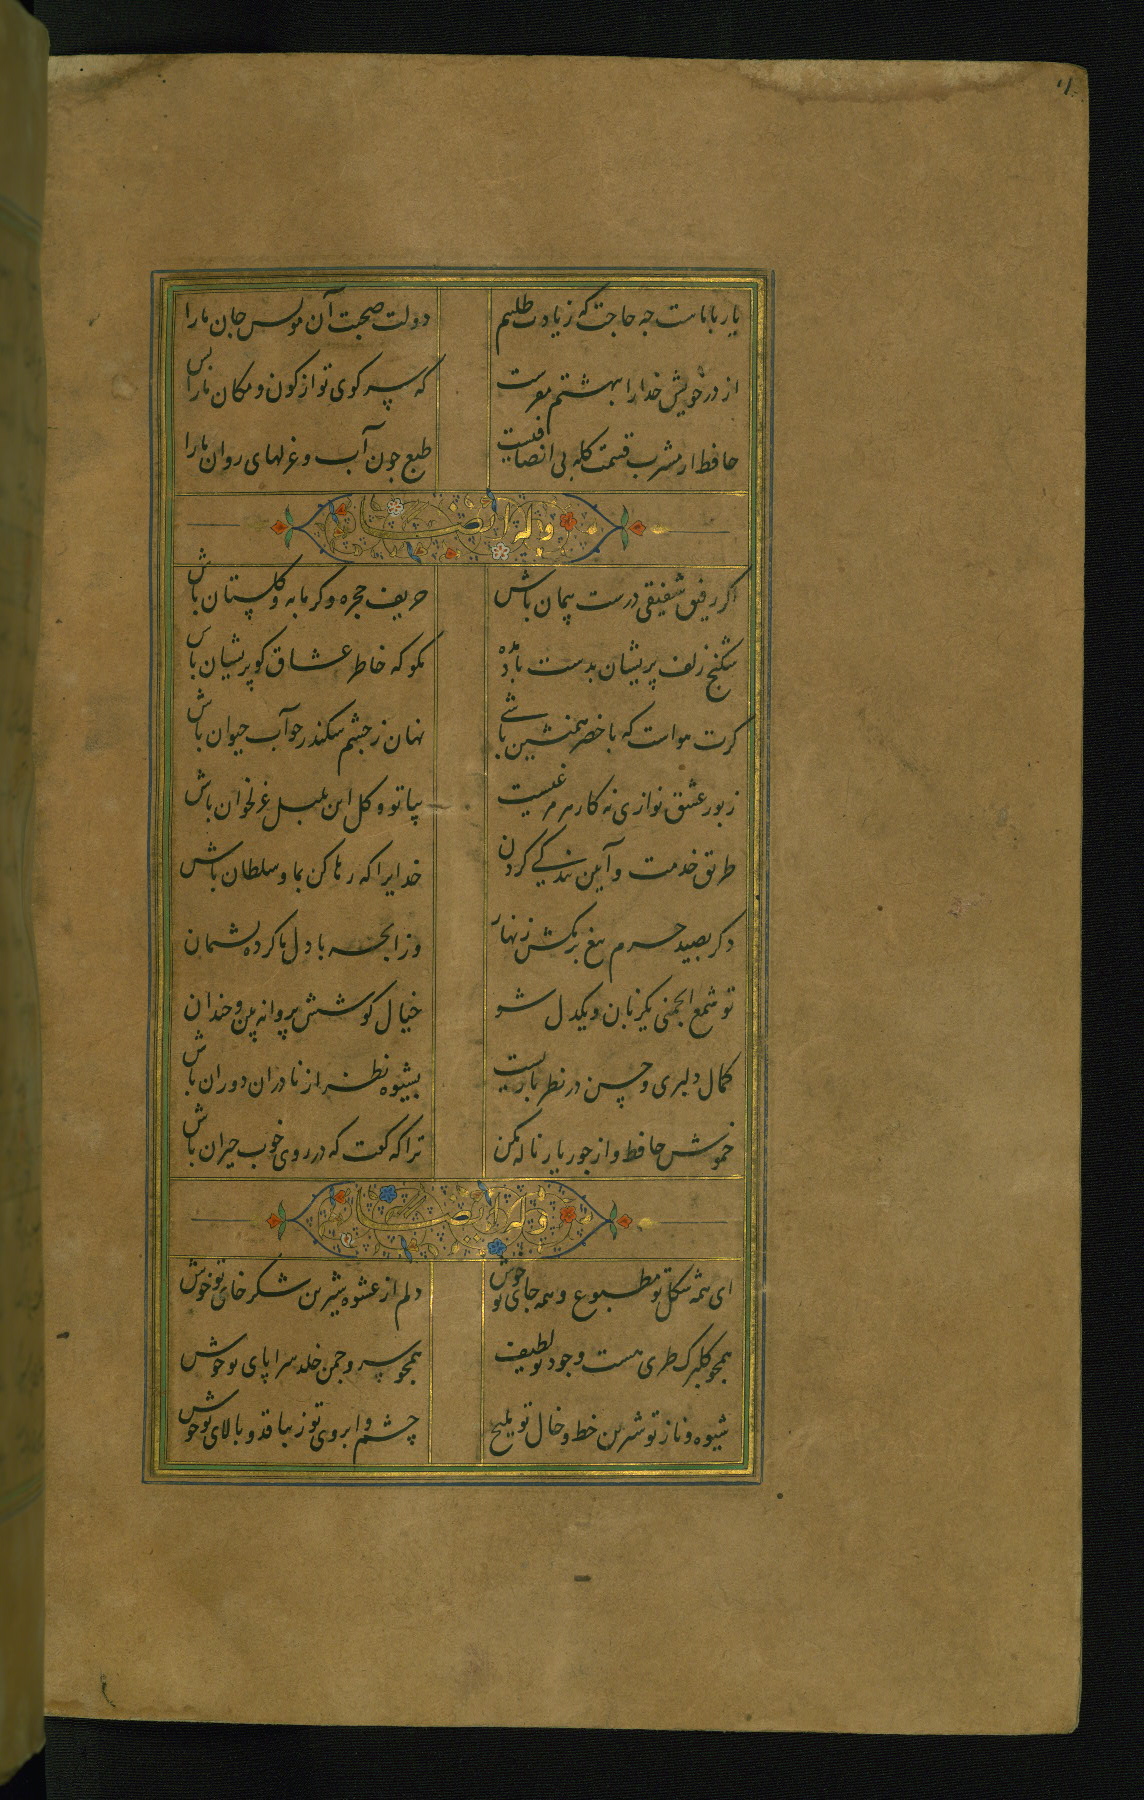 یار با ماست چه حاجت که زیادت طلبیم
دولت صحبت آن مونس جان ما را بس
از در خویش خدا را بهشتم مفرست
که سر کوی تو از کون و مکان ما را بس
حافظ از مشرب قسمت کله بی انصافیست
طبع چون آب و غزلهای روان ما را
وله ایضا
اگر رفیق شفیقی درست پیمان باش
حریف حجره و کرمابه و کلستان باش
شکنج زلف پریشان بدست باد مده
مکو که خاطر عشاق کو پریشان باش
کرت هواست که با خضر همنشین باشی
نهان ز چشم سکندر چو آب حیوان باش
زبور عشق نوازی نه کار هر مرغیست
بیا تو و کل این بلبل غزلخوان باش
طریق خدمت و آیین بندکی کردن
خدایرا که رها کن بما و سلطان باش
دکر بصید حرم تیغ برمکش زنهار
وز انچه با دل ما کرده پشیمان
تو شمع انجمنی یکزبان و یکدل شو
خیال کوشش پروانه بین و خندان
کمال دلبری و حسن در نظر بازیست
بشیوه نظر از نادران دوران باش
خموش حافظ و از جور یار ناله مکن
ترا که کفت که در روی خوب حیران باش
وله ایضا
ای همه شکل تو مطبوع و همه جای تو خوش
دلم از عشوه شیرین شکر خای تو خوش
همچو کلبرک طری هست وجود تو لطیف
همچو سرو چمن خلد سراپای تو خوش
شیوه و ناز تو شیرین خط و خال تو ملیح
چشم و ابروی تو زیبا قد و بالای تو خوش